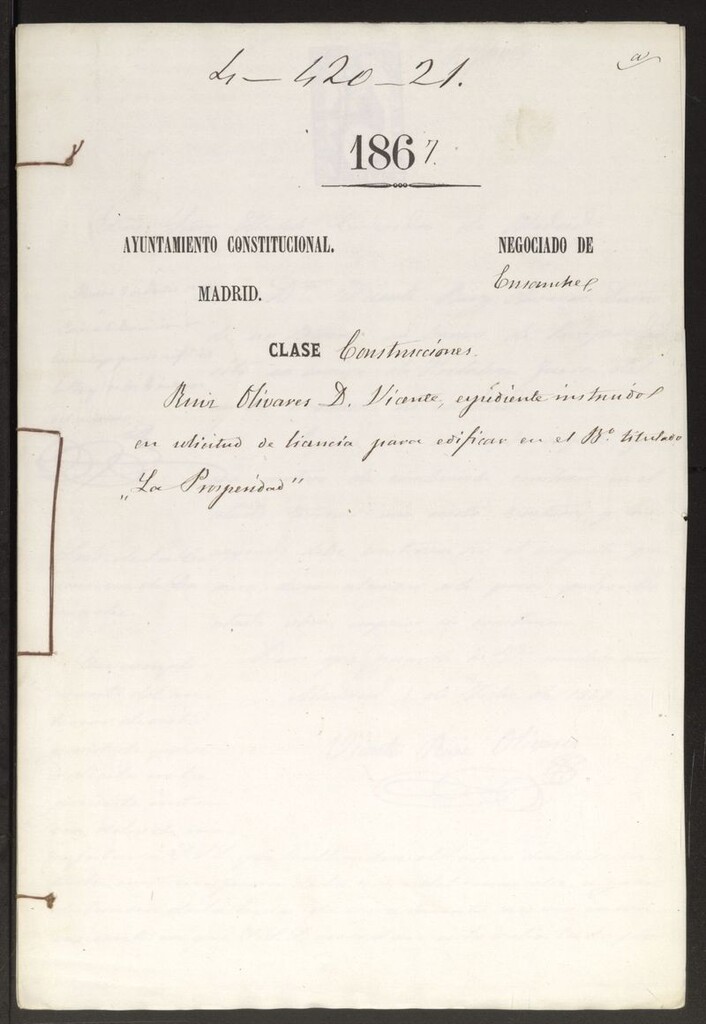 4-420-21.
1867.
AYUNTAMIENTO CONSTITUCIONAL.
MADRID.
NEGOCIADO DE
Ensanche
CLASE Construcciones.
Ruiz Olivares D. Vicente, expediente instruido
en solicitud de licencia para edificar en el Bº. titulado
"La Prosperidad"